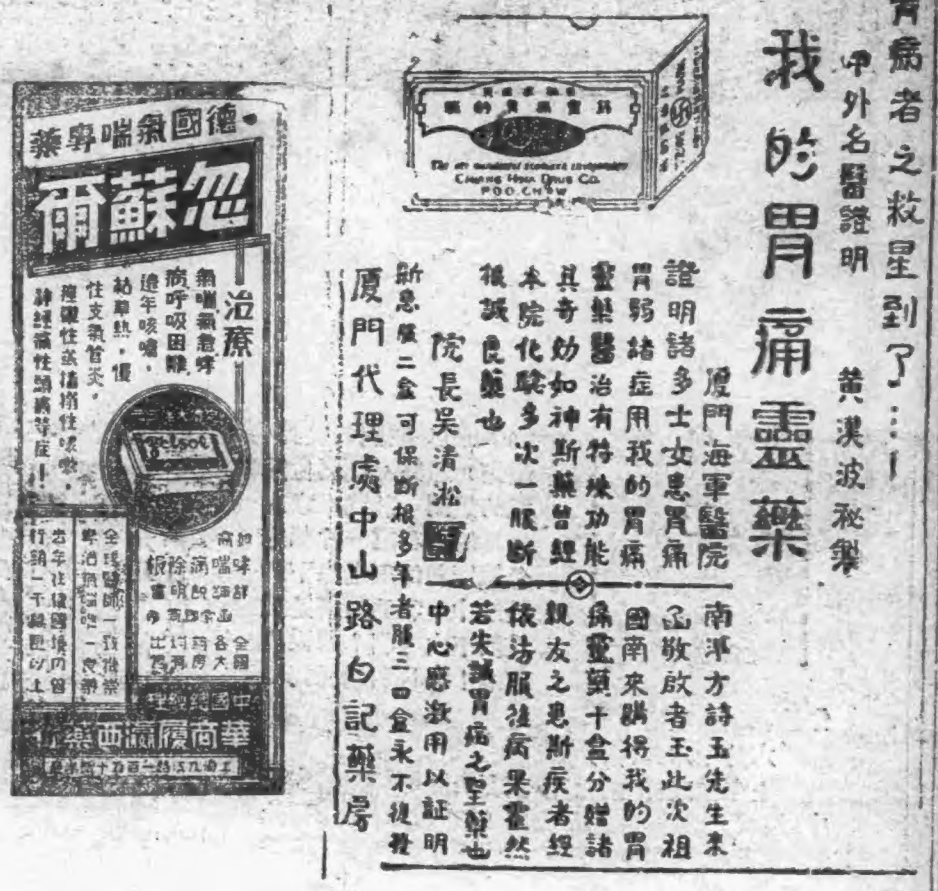 胃病者之救星到了…！
中外名醫證明
黃漢波祕製
我的胃痛靈藥
CHUANG HWA DRUG CO.
FOO.CHOW
厦門海軍醫院
證明諸多士女患胃痛
胃弱諸症用我的胃痛
靈藥醫治有特殊功能
其奇効如神斯藥曾經
本院化驗多次一服斷
根誠良藥也
院長吳清淞
南洋方詩玉先生來
函敬啟者玉此次祖
國南來購得我的胃
痛靈藥十盒分贈諸
親友之患斯疾者經
依法服後病果霍然
若失誠胃病之聖藥也
中心感激用以証明
新患服二盒可保斷根多年者服三四盒永不復發
厦門代理處中山路白記藥房
德國氣喘專藥
忽蘇爾
治療
氣喘氣急哮
病呼吸困難
遠年咳嗆，
枯草熱，慢
性支氣管炎，
痙攣性或搐搦性咳嗽，
神經痛性頭痛等症！
全球醫師一致推崇
專治
去年在德國境內曾
行銷一千萬包以上
全國
各大
药房
中國總經理
華商復瀛西藥行